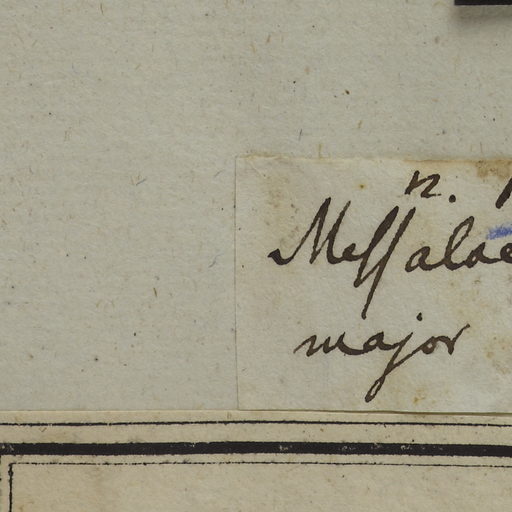 n.
Messalae
major